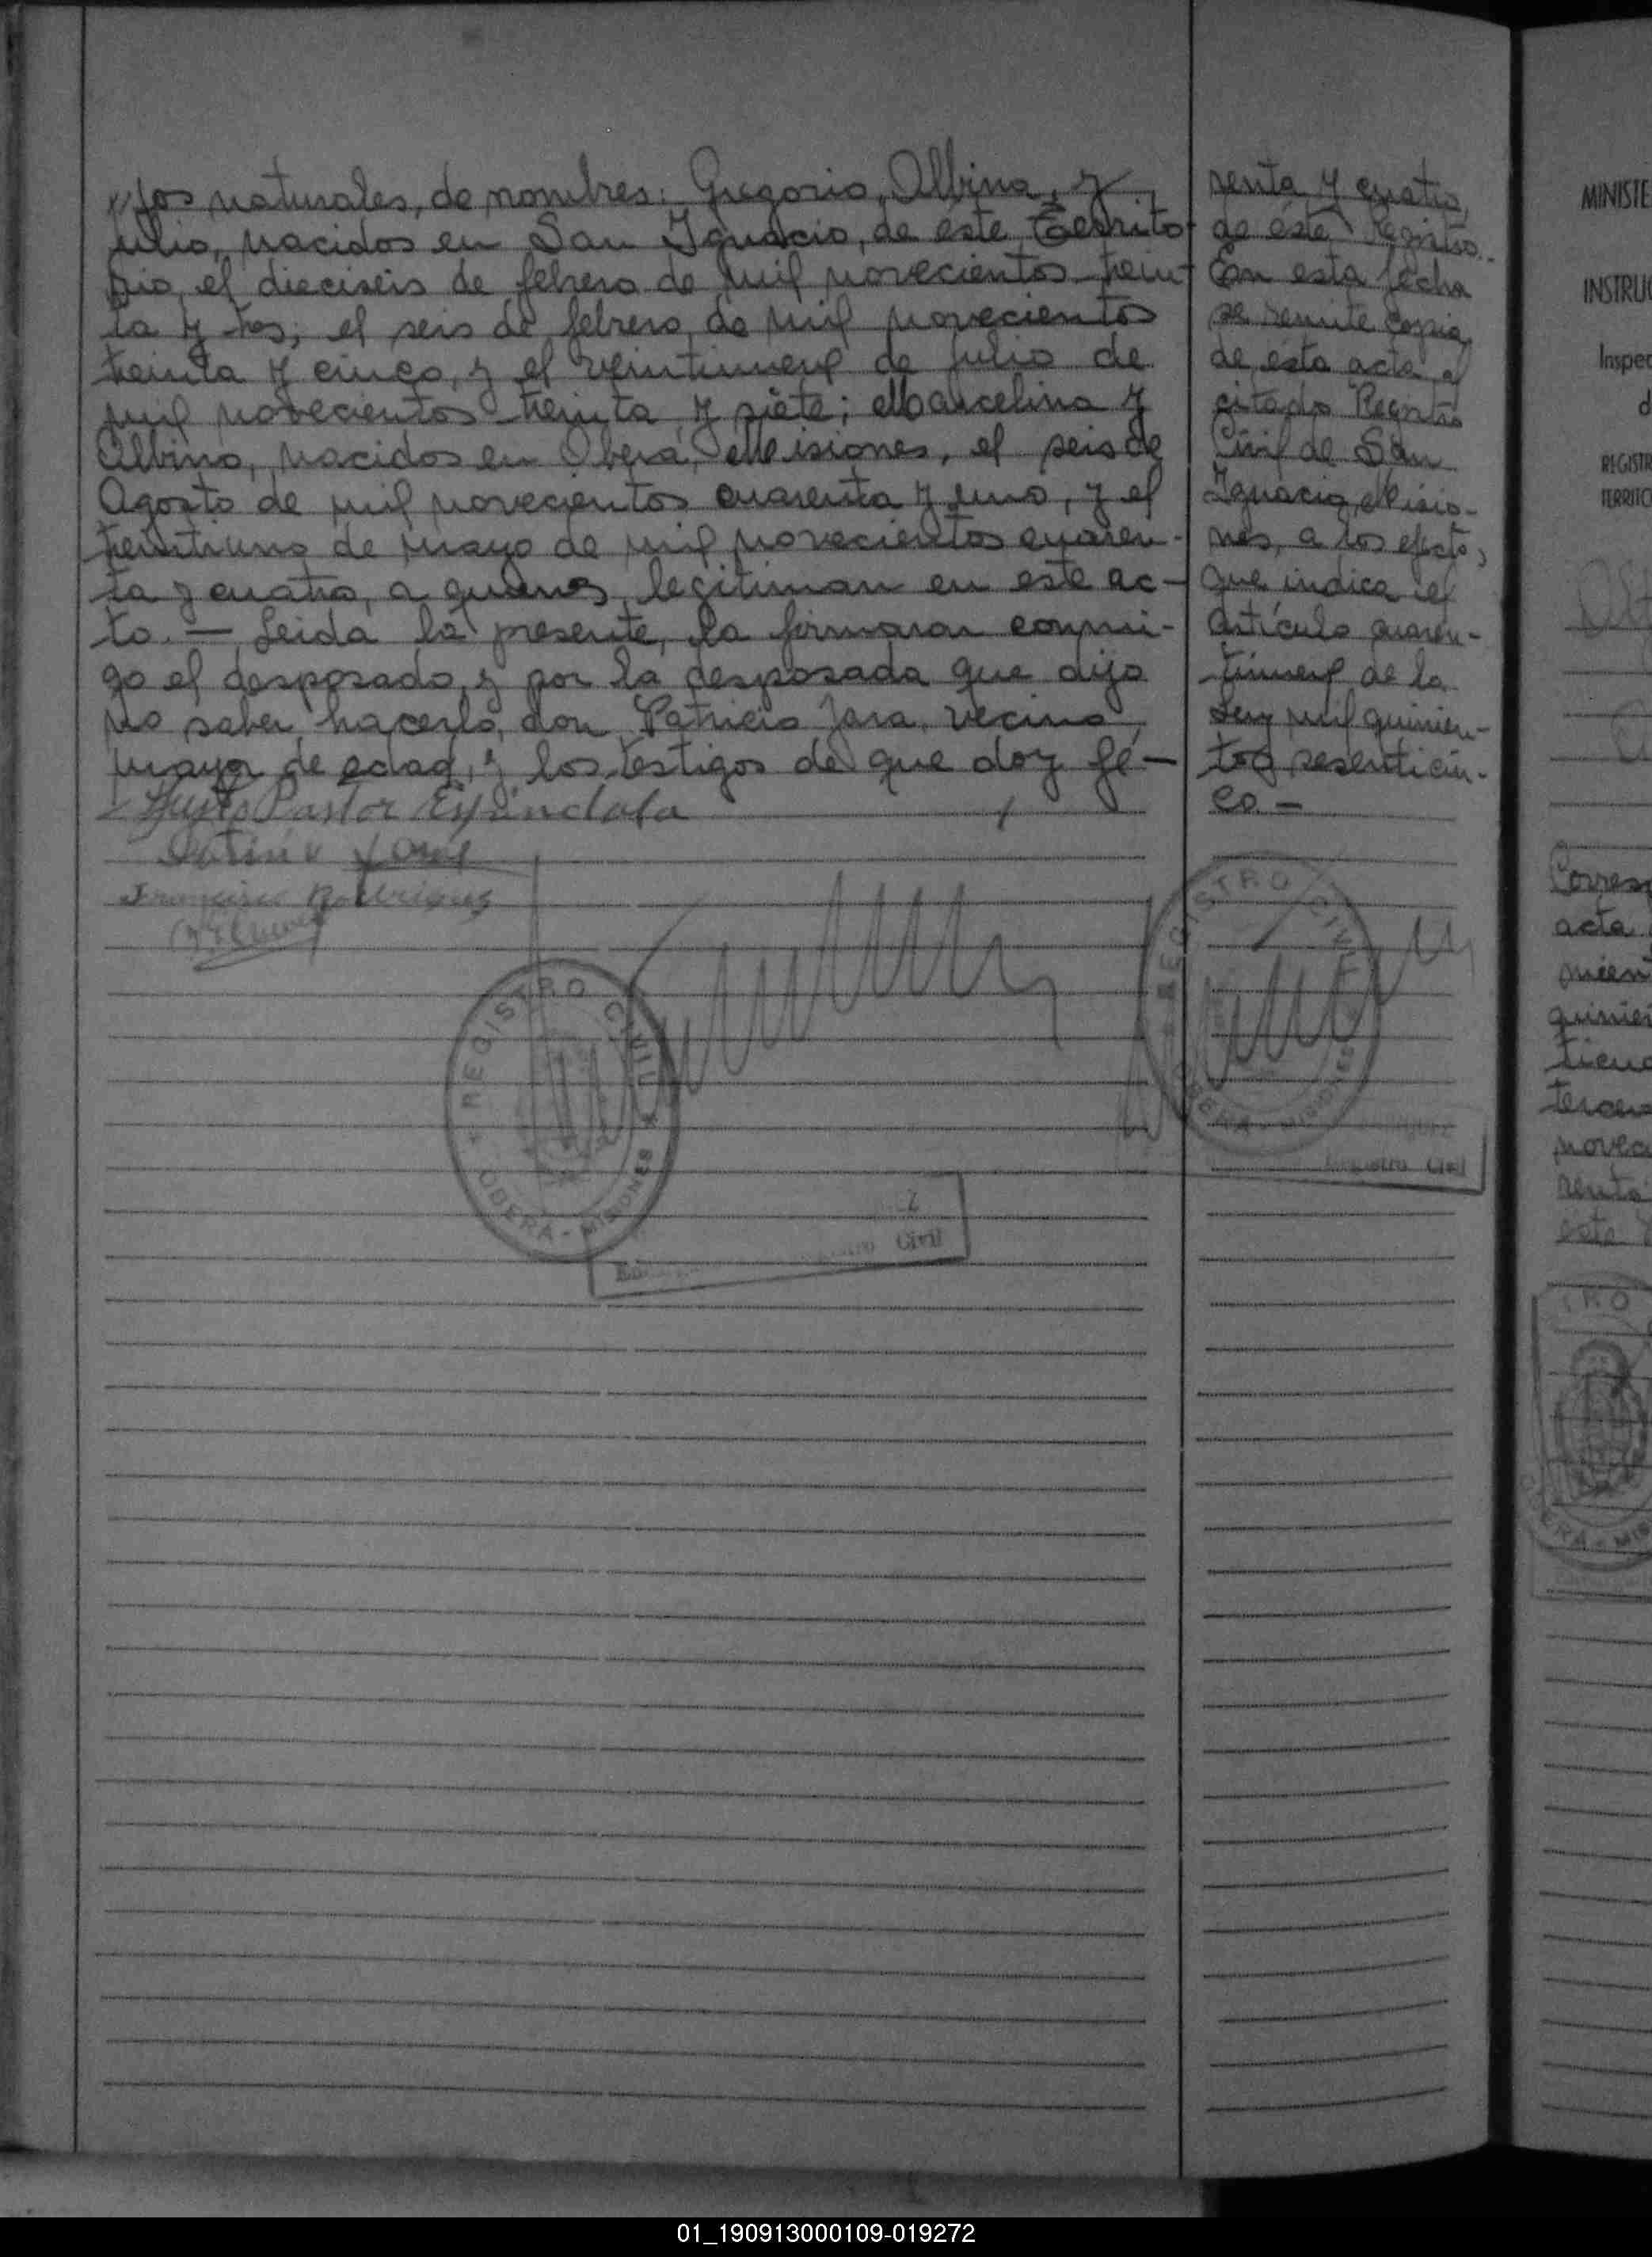 "jos naturales, de nombres: Gregorio, Albina, y
Julio, nacidos en San Ignacio, de este Territo-
rio, el dieciseis de febrero de mil novecientos trein-
ta y tres, el seis de febrero de mil novecientos
treinta y cinco, y el veintinueve de julio de
mil novecientos treinta y siete; Marcelina y
Albino, nacidos en Oberá, Misiones, el seis de
Agosto de mil novecientos cuarenta y uno, y el
treintiuno de mayo de mil novecientos cuaren-
ta y cuatro, a quienes legitiman en este ac-
to. — Leida la presente, la firmaron conmi-
go el desposado, y por la desposada que dijo
no saber hacerlo, don Patricio Jara, vecino,
mayor de edad, y los testigos de que doy fé —
Justo Pastor Espindola
Francisco Rodriguez
REGISTRO CIVIL
OBERA - MISIONES
Civil
renta y cuatro,
de éste Registro.-
En esta fecha
se remite copia
de esta acta, al
citado Registro
Civil de San
Ignacio, Misio-
nes, a los efectos
que indica el
artículo cuaren-
tinueve de la
Ley mil quinien-
tos sesenticin-
co. —
REGISTRO CIVIL
OBERA - MISIONES
Registro Civil
MINISTE
INSTRU
Inspec
d
REGISTR
TERRITO
Corres
acta
mien
quinie
tercer
novec
renta
este
TRO
OBERA - MIS
01_190913000109-019272